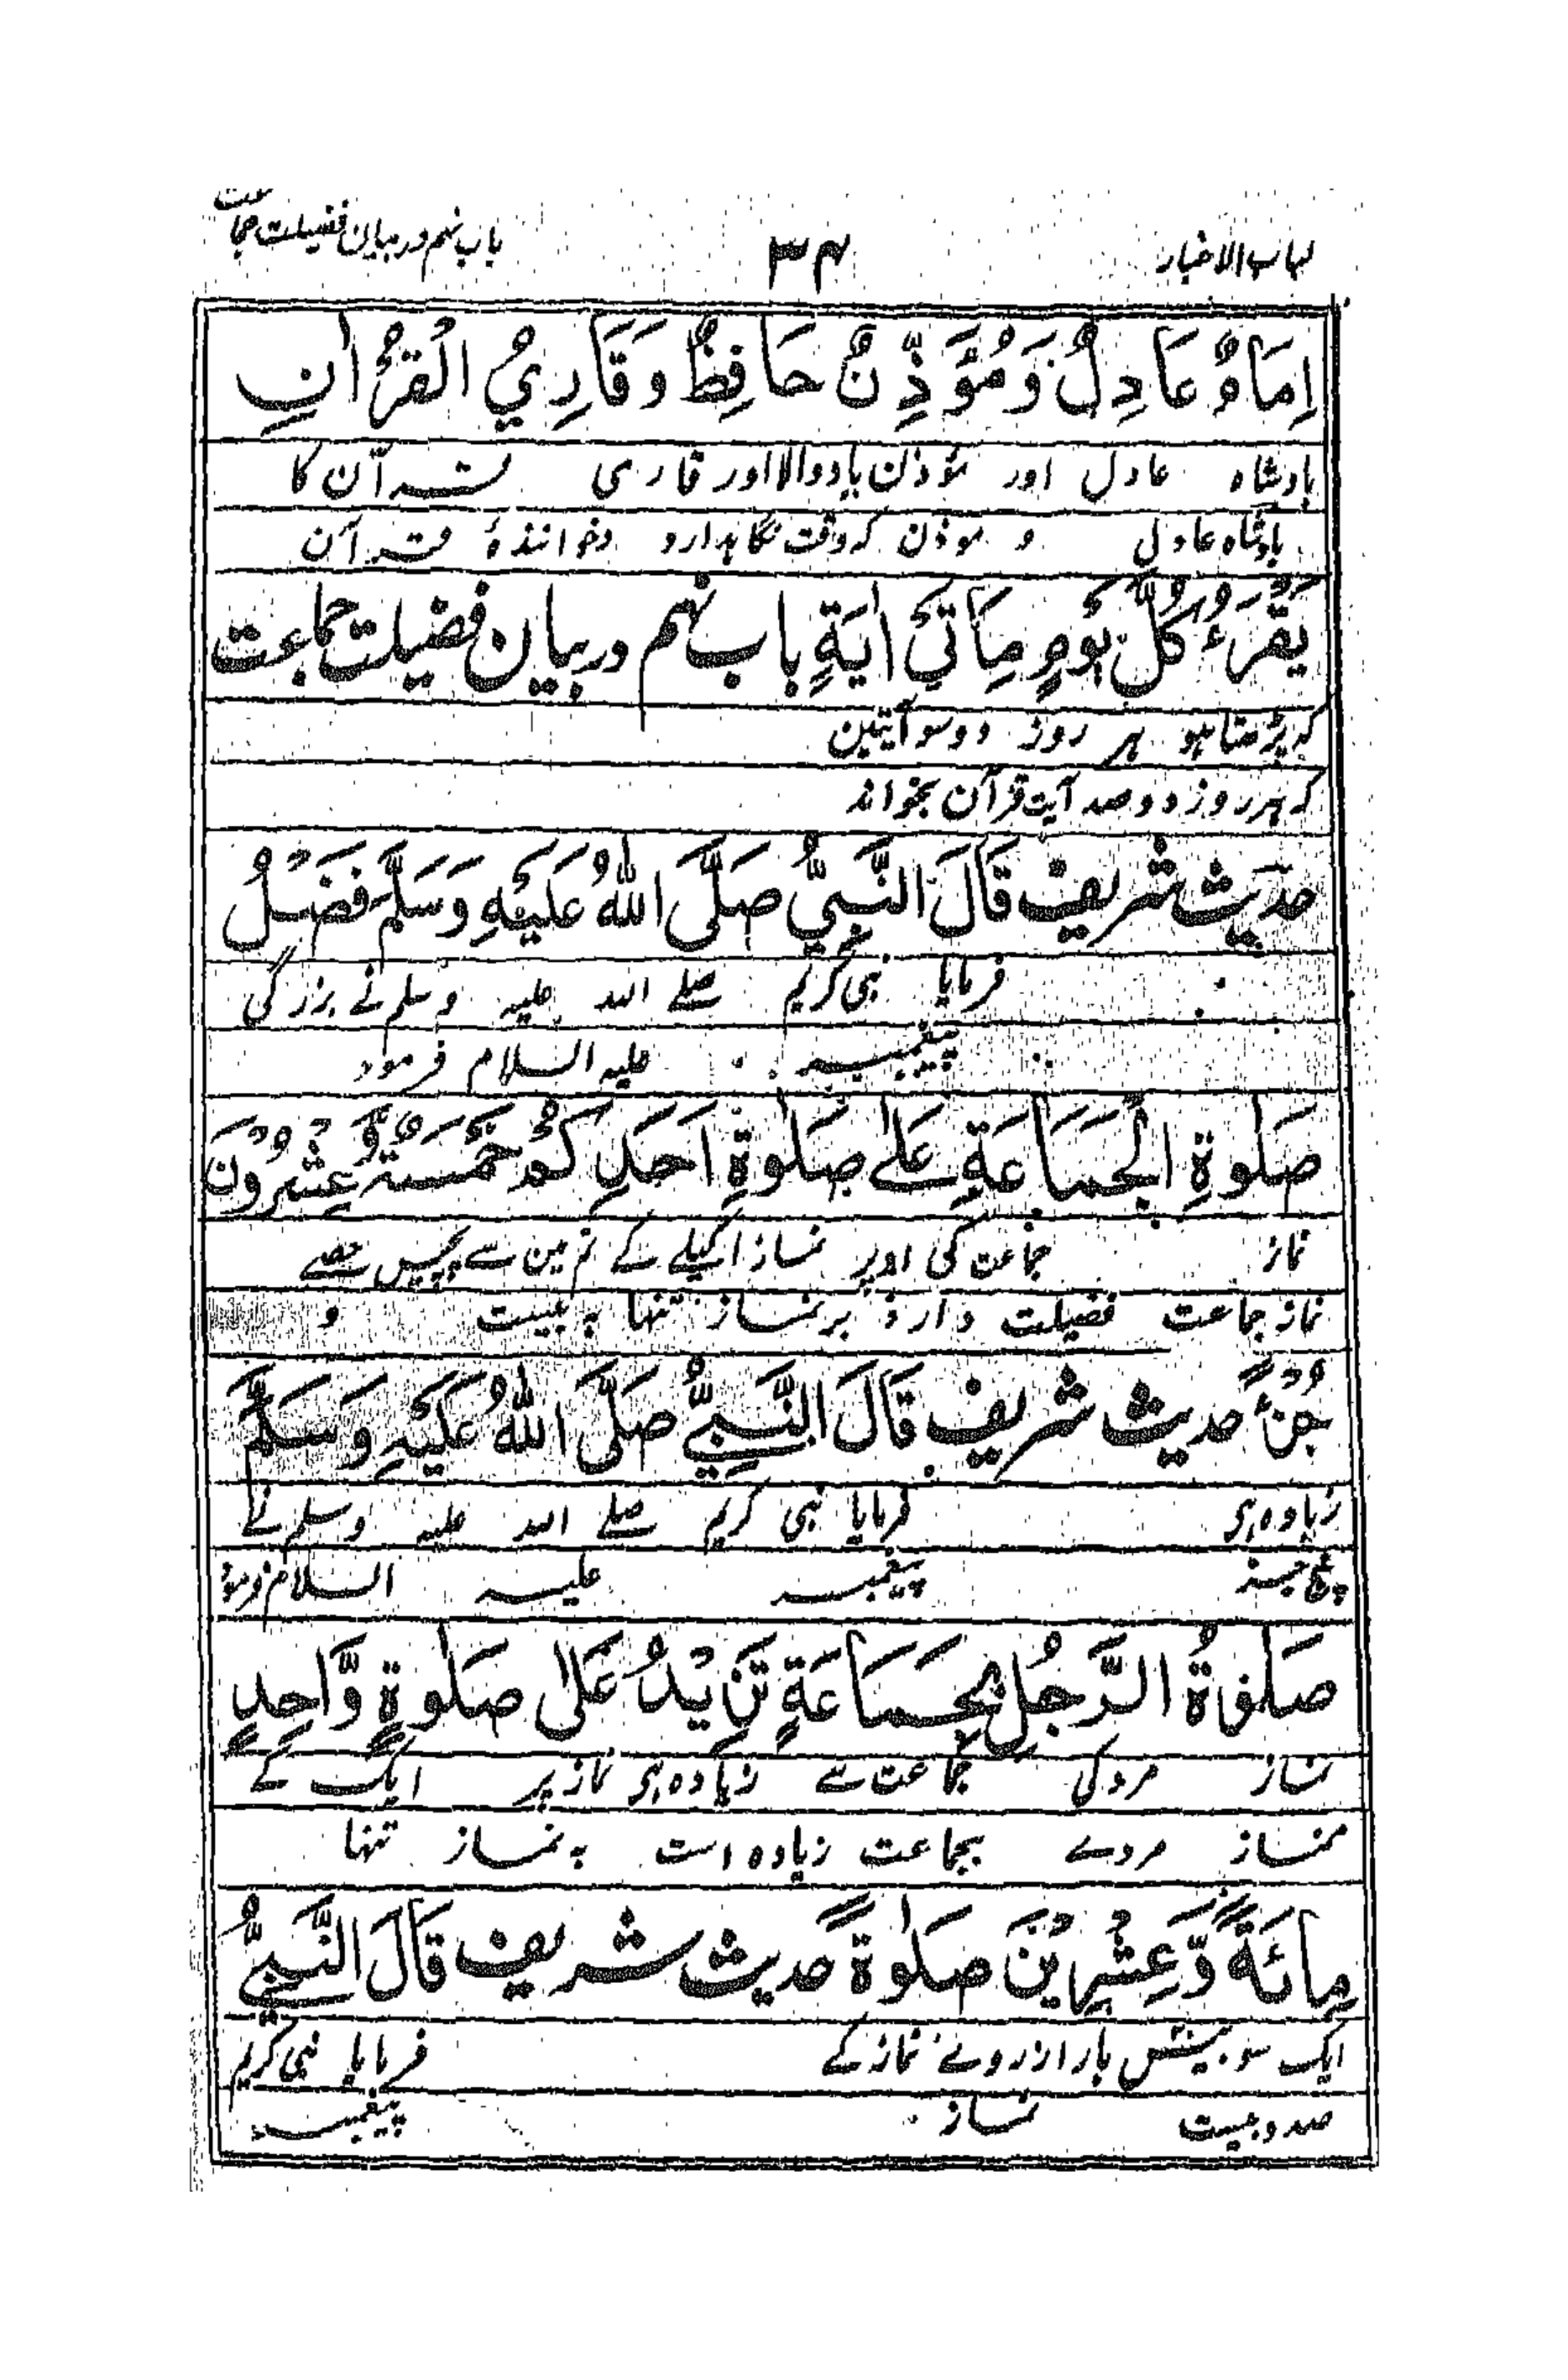 لباب الاخبار ۳۴ باب نہم در بیان فضیلت جماعت
اِمَامٌ عَادِلٌ وَمُؤَذِّنٌ حَافِظٌ وَقَارِيُ الْقُرْاٰنِ
بادشاہ عادل اور مؤذن یادوالا اور قاری قرآن کا
بادشاہ عادل و موذن کہ وقت نگاہدارد و خوانندۂ قرآن
يَقْرَءُ كُلَّ يَوْمٍ مِاَتَيْ اٰيَةٍ باب نہم در بیان فضیلت جماعت
کہ پڑھتا ہو ہر روز دو سو آیتین
کہ ہر روز دو صد آیت قرآن بخواند
حدیث شریف قَالَ النَّبِيُّ صَلَّى اللّٰهُ عَلَيْهِ وَسَلَّمَ فَضْلُ
فرمایا نبی کریم صلے اللہ علیہ وسلم نے بزرگی
پیغمبر علیہ السلام فرمود
صَلٰوةِ الْجَمَاعَةِ عَلٰى صَلٰوةِ اَحَدِكُمْ خَمْسَةٌ وَّعِشْرُوْنَ
نماز جماعت کی اوپر نماز اکیلے کے تم مین سے پچیس حصے
نماز جماعت فضیلت دارد بر نماز تنہا بہ بیست و
جُزْءً حدیث شریف قَالَ النَّبِيُّ صَلَّى اللّٰهُ عَلَيْهِ وَسَلَّمَ
زیادہ ہی فرمایا نبی کریم صلے اللہ علیہ وسلم نے
پنج چند پیغمبر علیہ السلام فرمود
صَلٰوةُ الرَّجُلِ بِجَمَاعَةٍ تَزِيْدُ عَلٰى صَلٰوةٍ وَّاحِدٍ
نماز مرد کی جماعت سے زیادہ ہی نماز پر ایک کے
نماز مردے بجماعت زیادہ است بہ نماز تنہا
مِائَةً وَّعِشْرِيْنَ صَلٰوةً حدیث شریف قَالَ النَّبِيُّ
ایک سو بیس بار از روئے نماز کے فرمایا نبی کریم
صد و بیست نماز پیغمبر